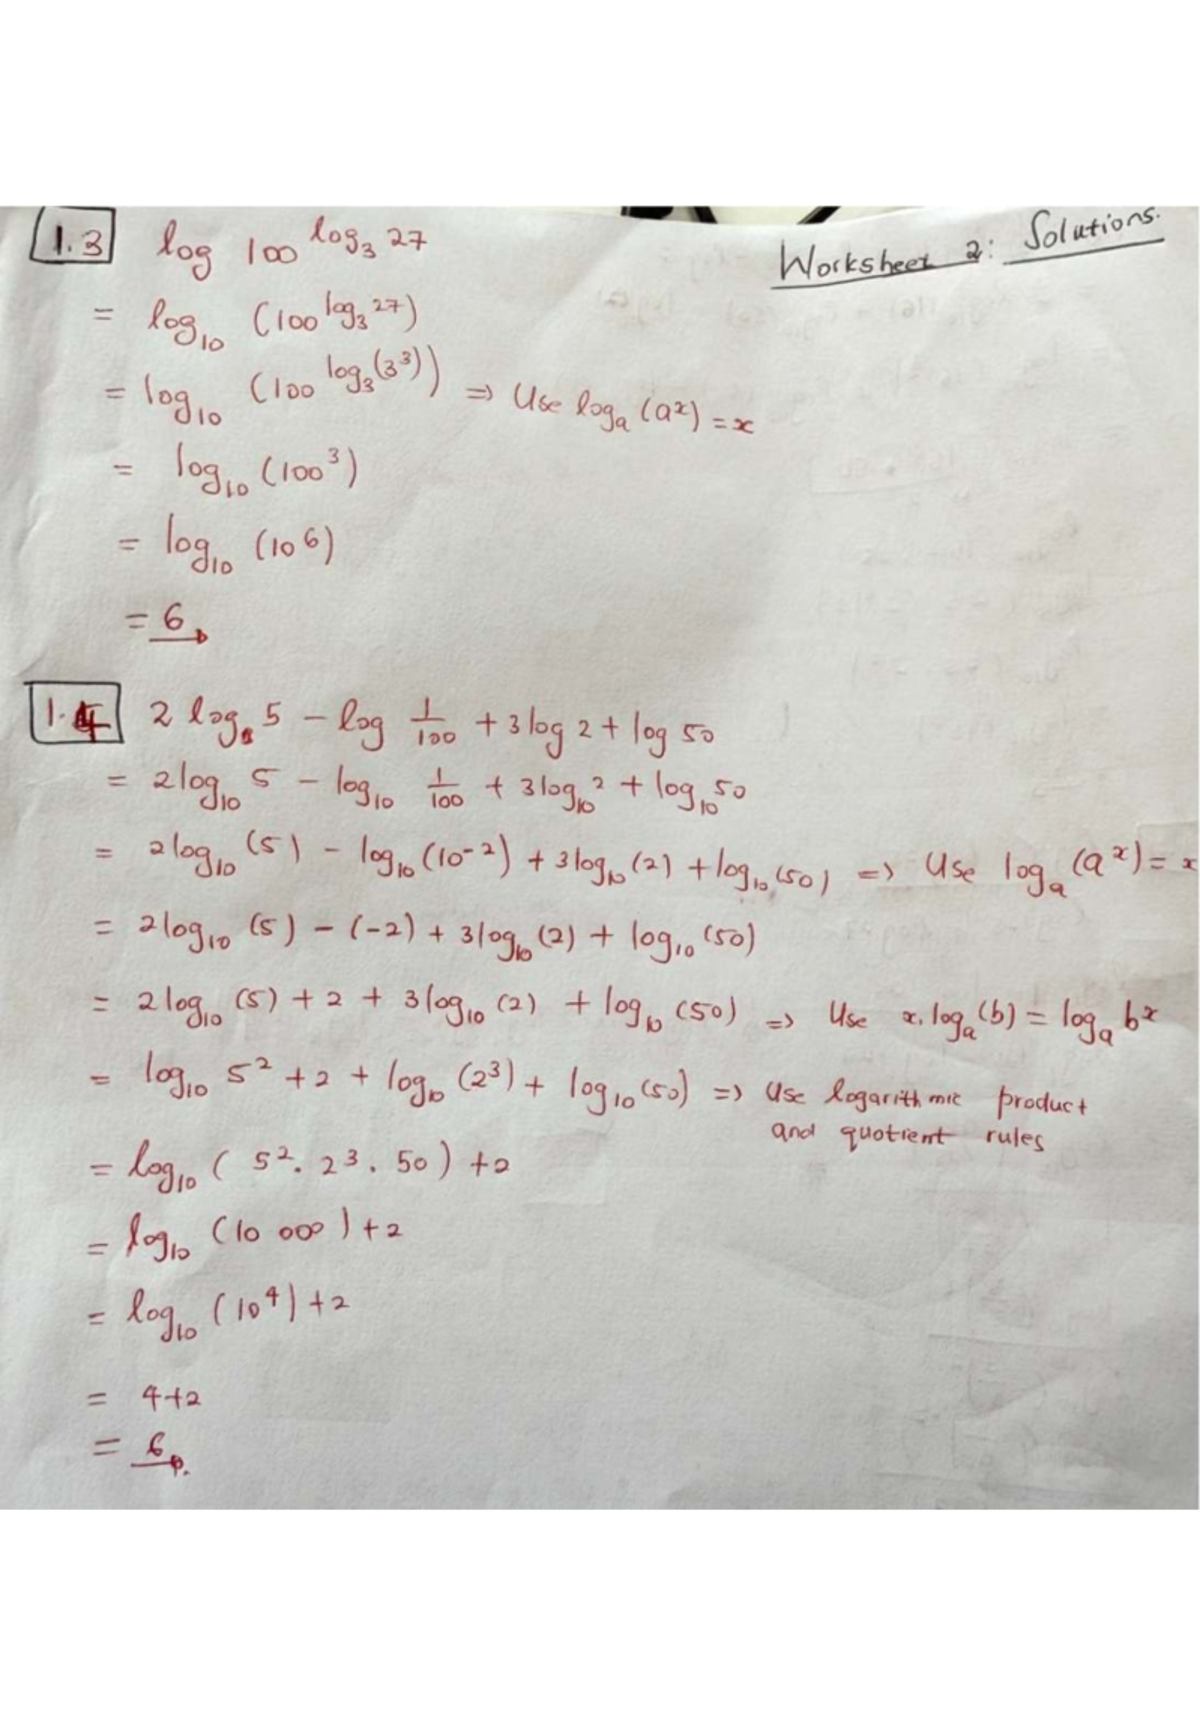 Worksheet 2: Solutions.
1.3 log 100^log₃ 27
= log₁₀ (100^log₃ 27)
= log₁₀ (100^log₃(3³)) ⇒ Use logₐ (aˣ) = x
= log₁₀ (100³)
= log₁₀ (10⁶)
= 6
1.4 2 log 5 - log 1/100 + 3 log 2 + log 50
= 2log₁₀ 5 - log₁₀ 1/100 + 3log₁₀ 2 + log₁₀ 50
= 2log₁₀ (5) - log₁₀ (10⁻²) + 3log₁₀ (2) + log₁₀ (50) ⇒ Use logₐ (aˣ) = x
= 2log₁₀ (5) - (-2) + 3log₁₀ (2) + log₁₀ (50)
= 2log₁₀ (5) + 2 + 3log₁₀ (2) + log₁₀ (50) ⇒ Use x.logₐ(b) = logₐ bˣ
= log₁₀ 5² + 2 + log₁₀ (2³) + log₁₀ (50) ⇒ Use logarithmic product
and quotient rules
= log₁₀ (5². 2³. 50) + 2
= log₁₀ (10 000) + 2
= log₁₀ (10⁴) + 2
= 4+2
= 6